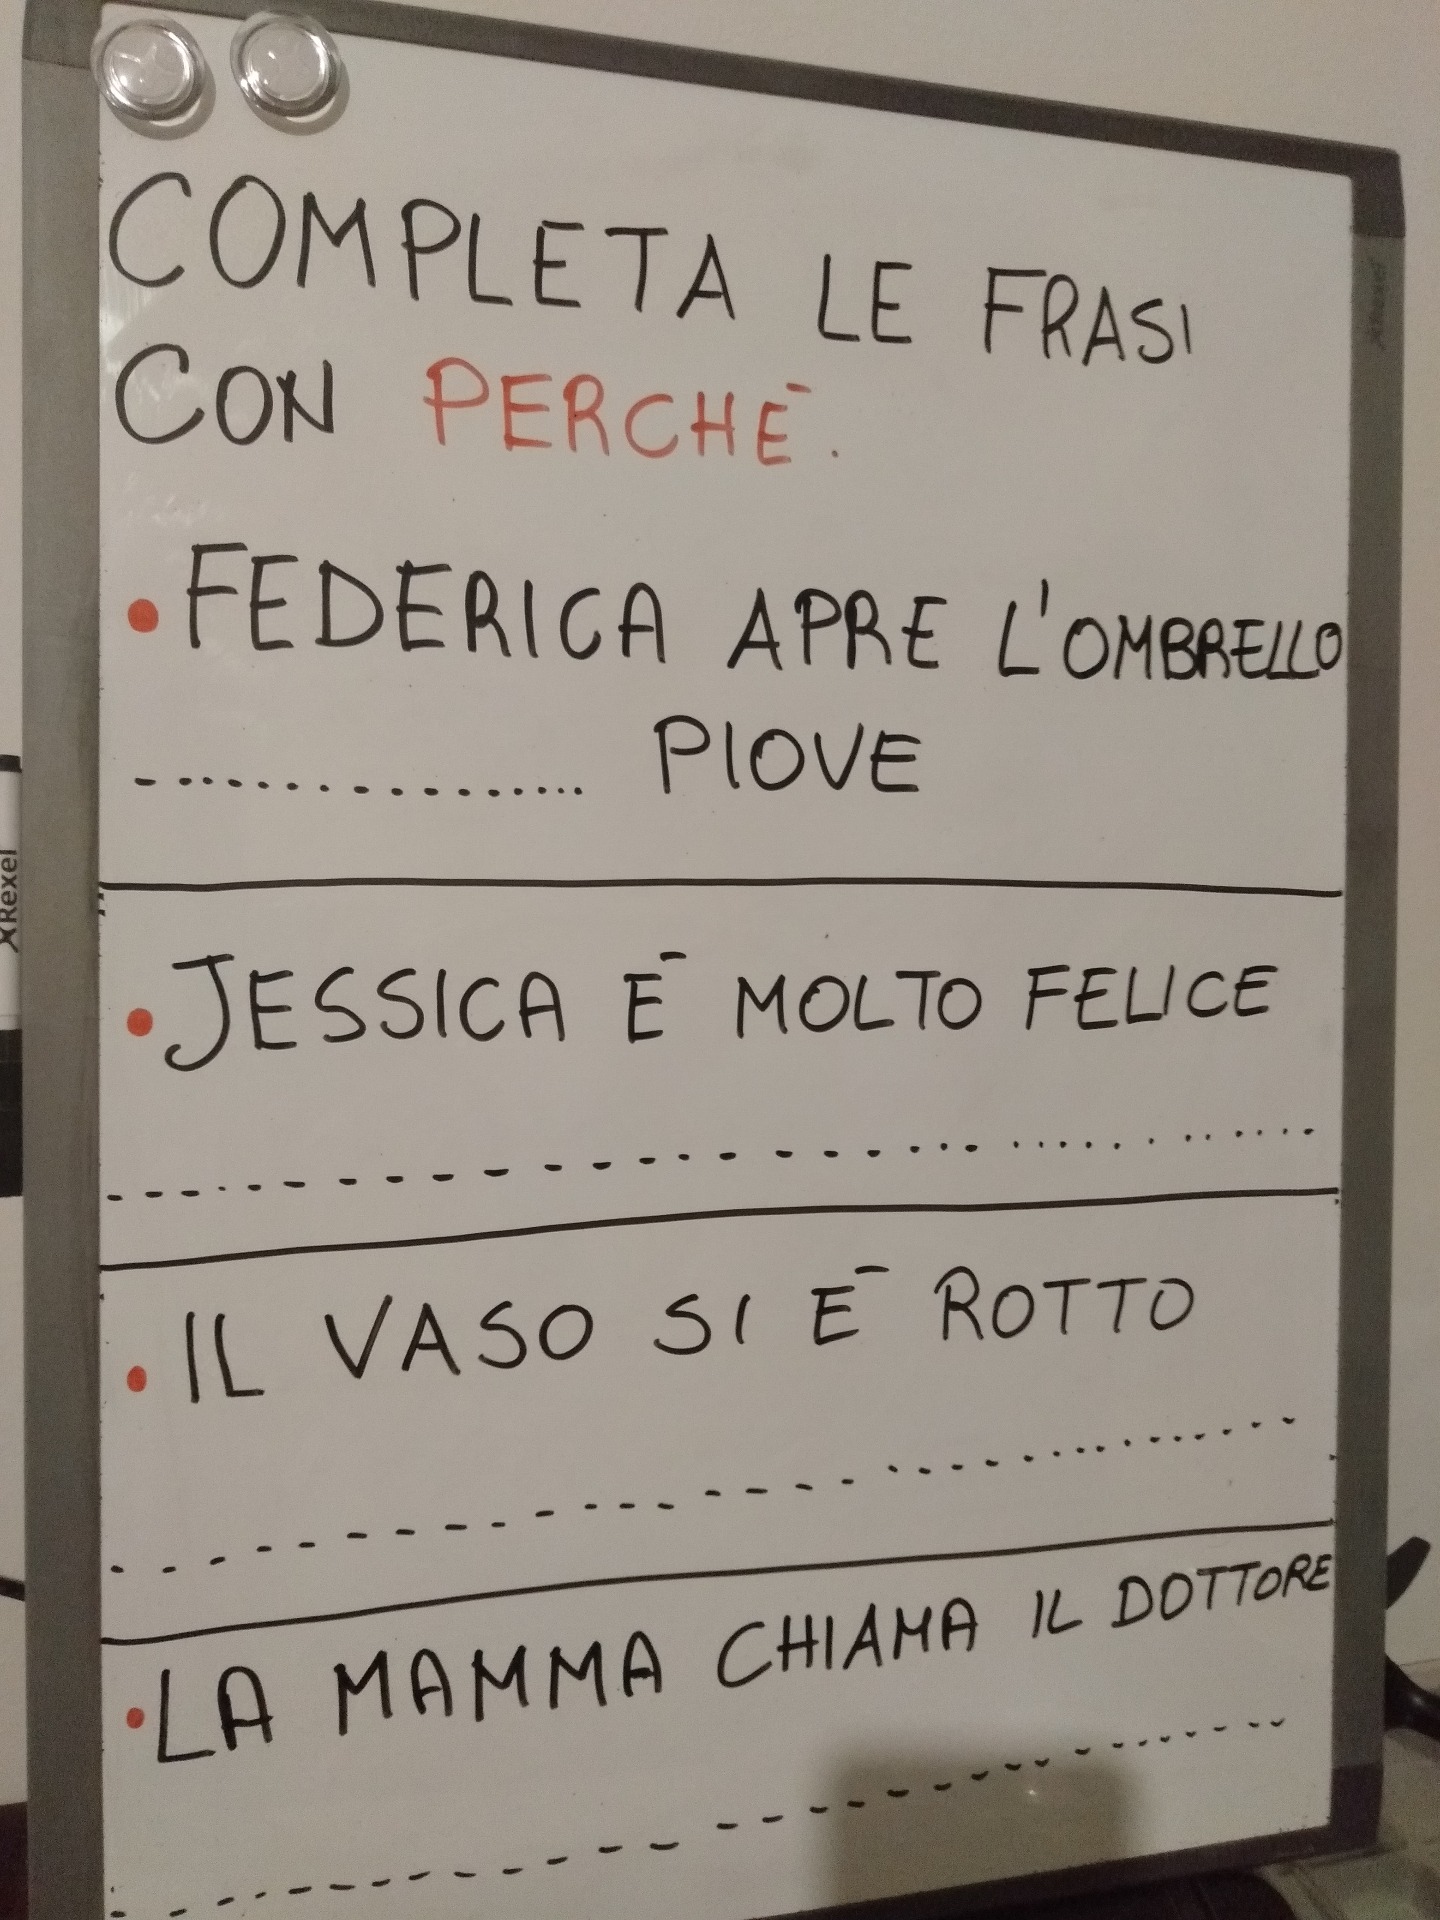 COMPLETA LE FRASI
CON PERCHÉ.
• FEDERICA APRE L'OMBRELLO
................ PIOVE
• JESSICA É MOLTO FELICE
..............................
• IL VASO SI É ROTTO
..............................
• LA MAMMA CHIAMA IL DOTTORE
..............................
XRexel